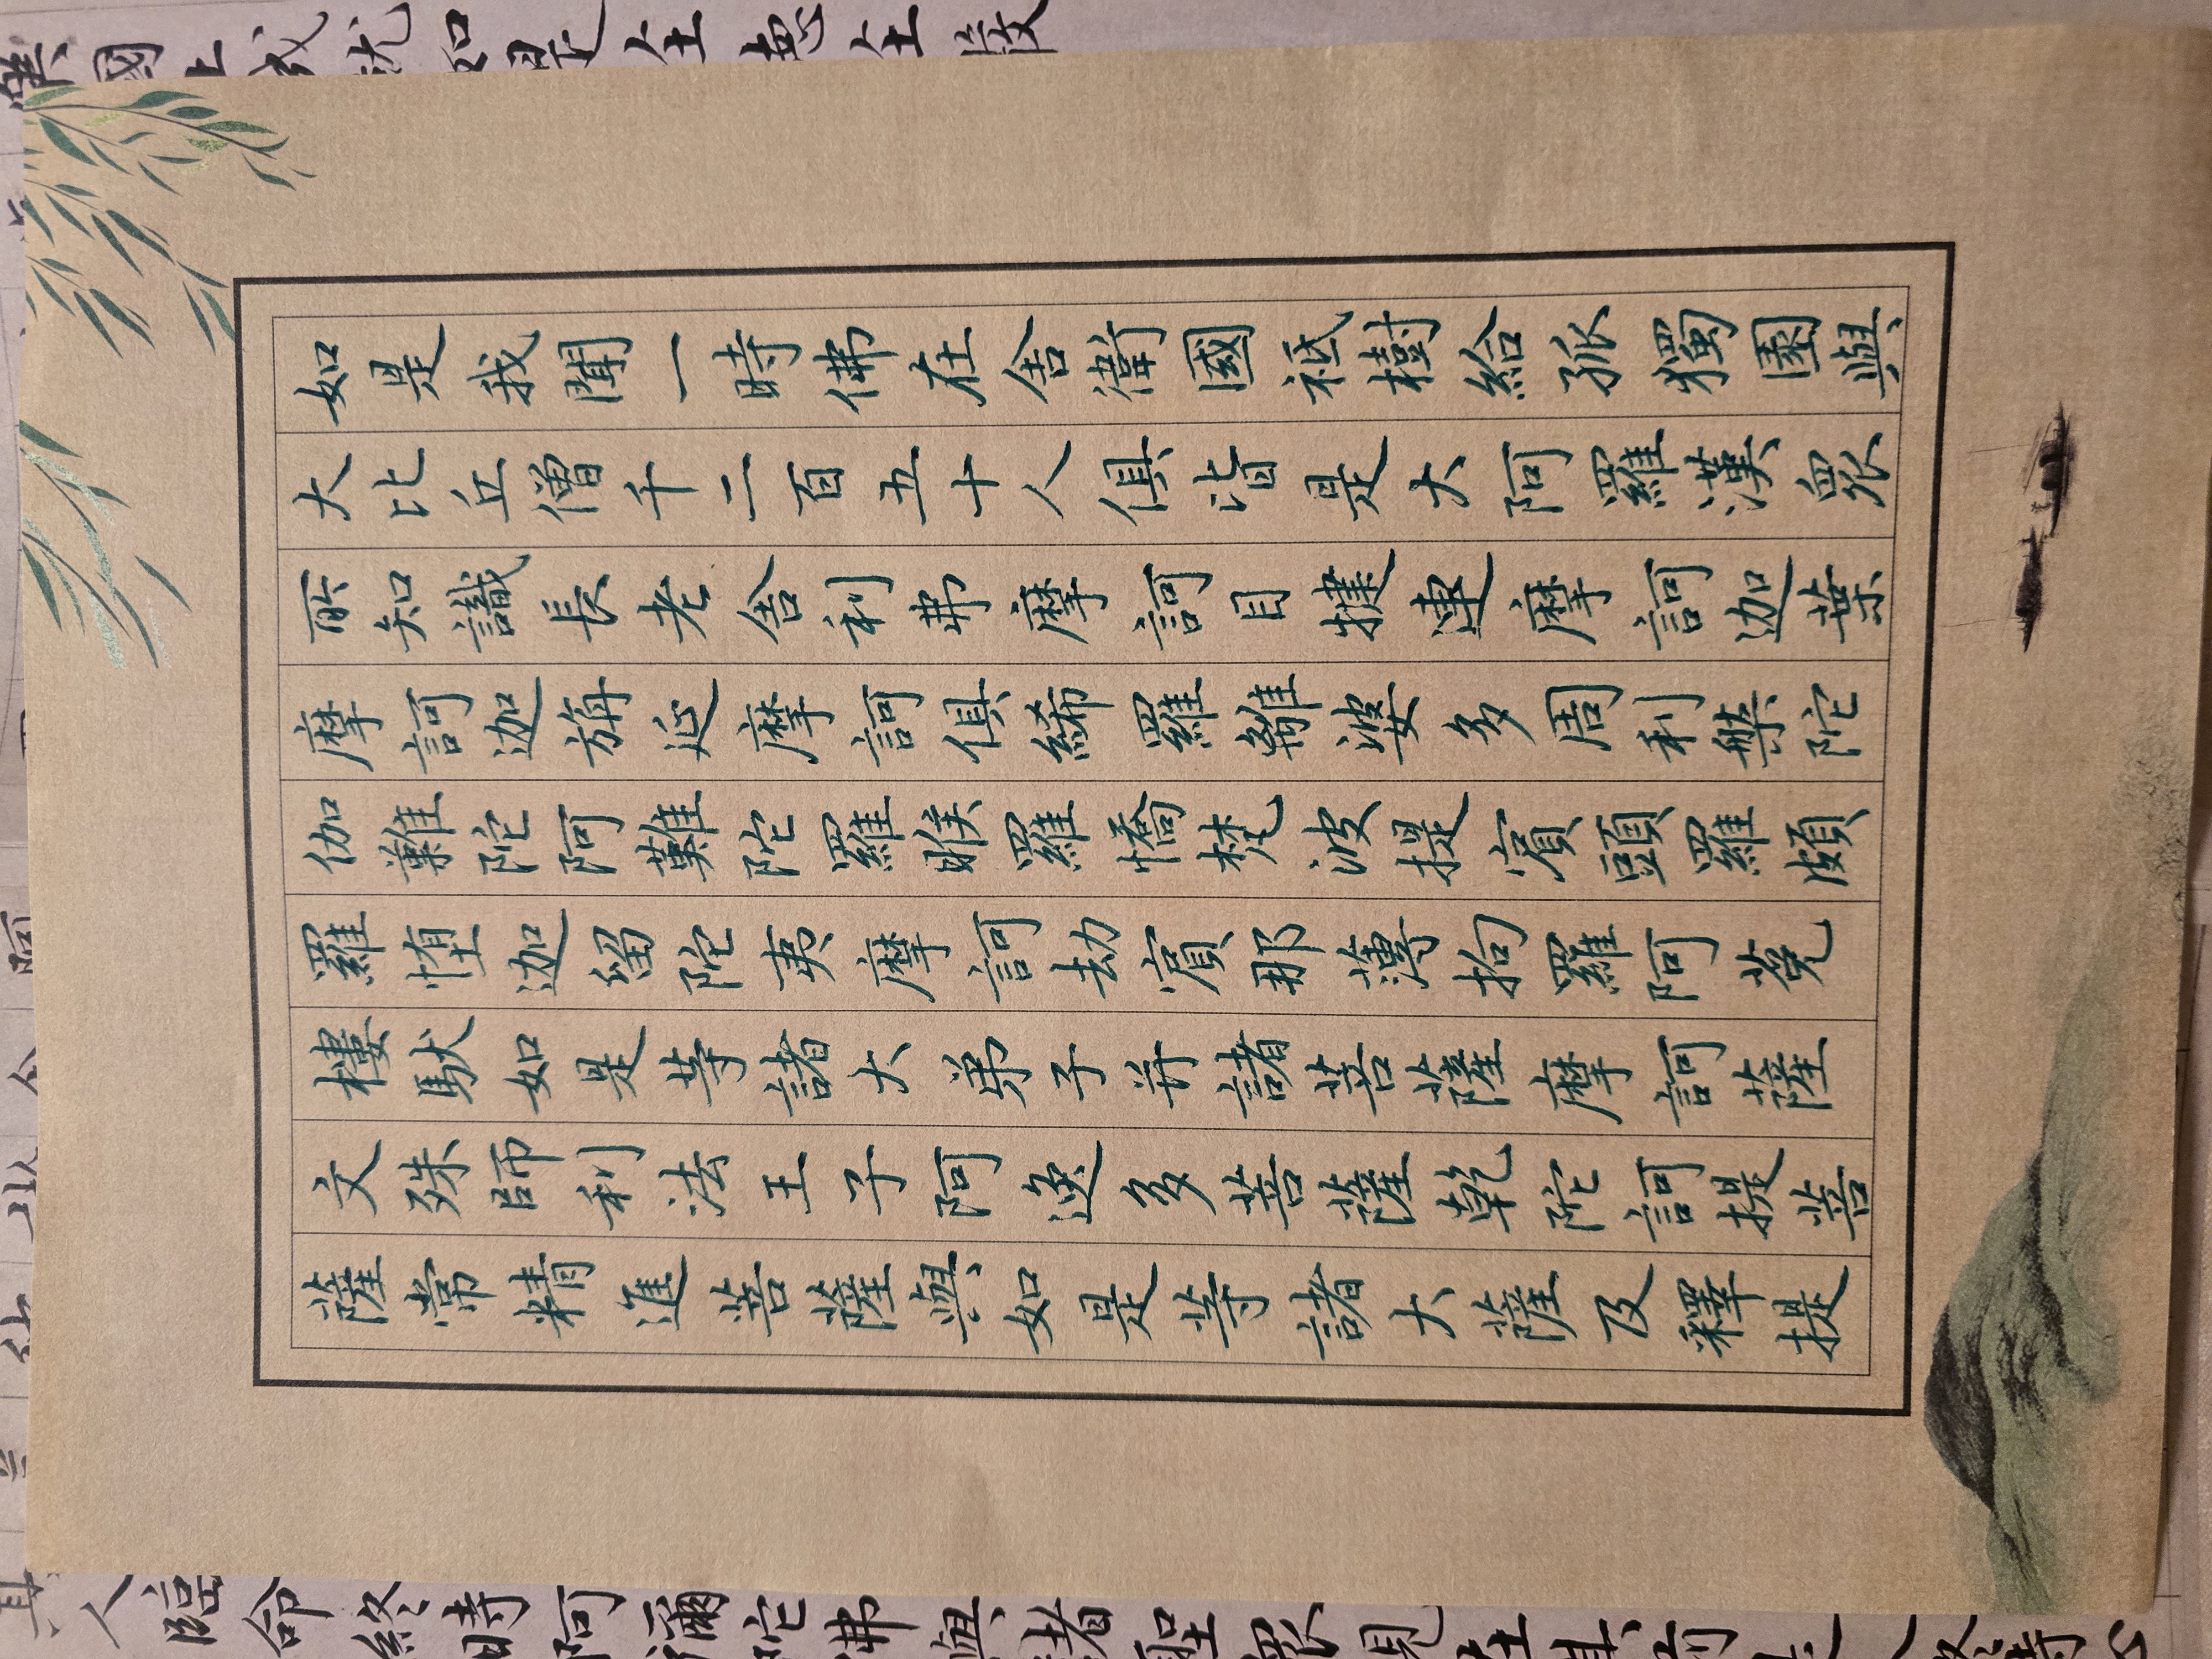 國土成就如是
如是我聞一時佛在舍衛國祇樹給孤獨園與
大比丘僧千二百五十人俱皆是大阿羅漢眾
所知識長老舍利弗摩訶目揵連摩訶迦葉
摩訶迦旃延摩訶俱絺羅離婆多周利槃陀
伽難陀阿難陀羅睺羅憍梵波提賓頭羅頗
羅堕迦留陀夷摩訶劫賓那薄拘羅阿菟
樓馱如是等諸大弟子并諸菩薩摩訶薩
文殊師利法王子阿逸多菩薩乾陀訶提菩
薩常精進菩薩與如是等諸大薩及釋提
其人臨命終時阿彌陀佛與諸聖眾現在其前是人終時心